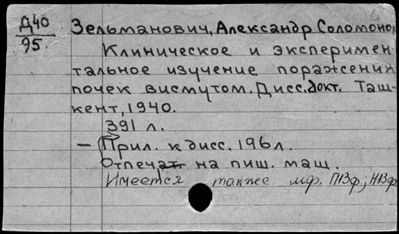 Д40
95.
Зельманович, Александр Соломонов
Клиническое и эксперимен-
тальное изучение поражений
почек висмутом. Дисс. докт. Таш-
кент, 1940.
391 л.
— Прил. к дисс. 196 л.
Отпечат на пиш. маш.
Имеется также мф. ПВф, НВф